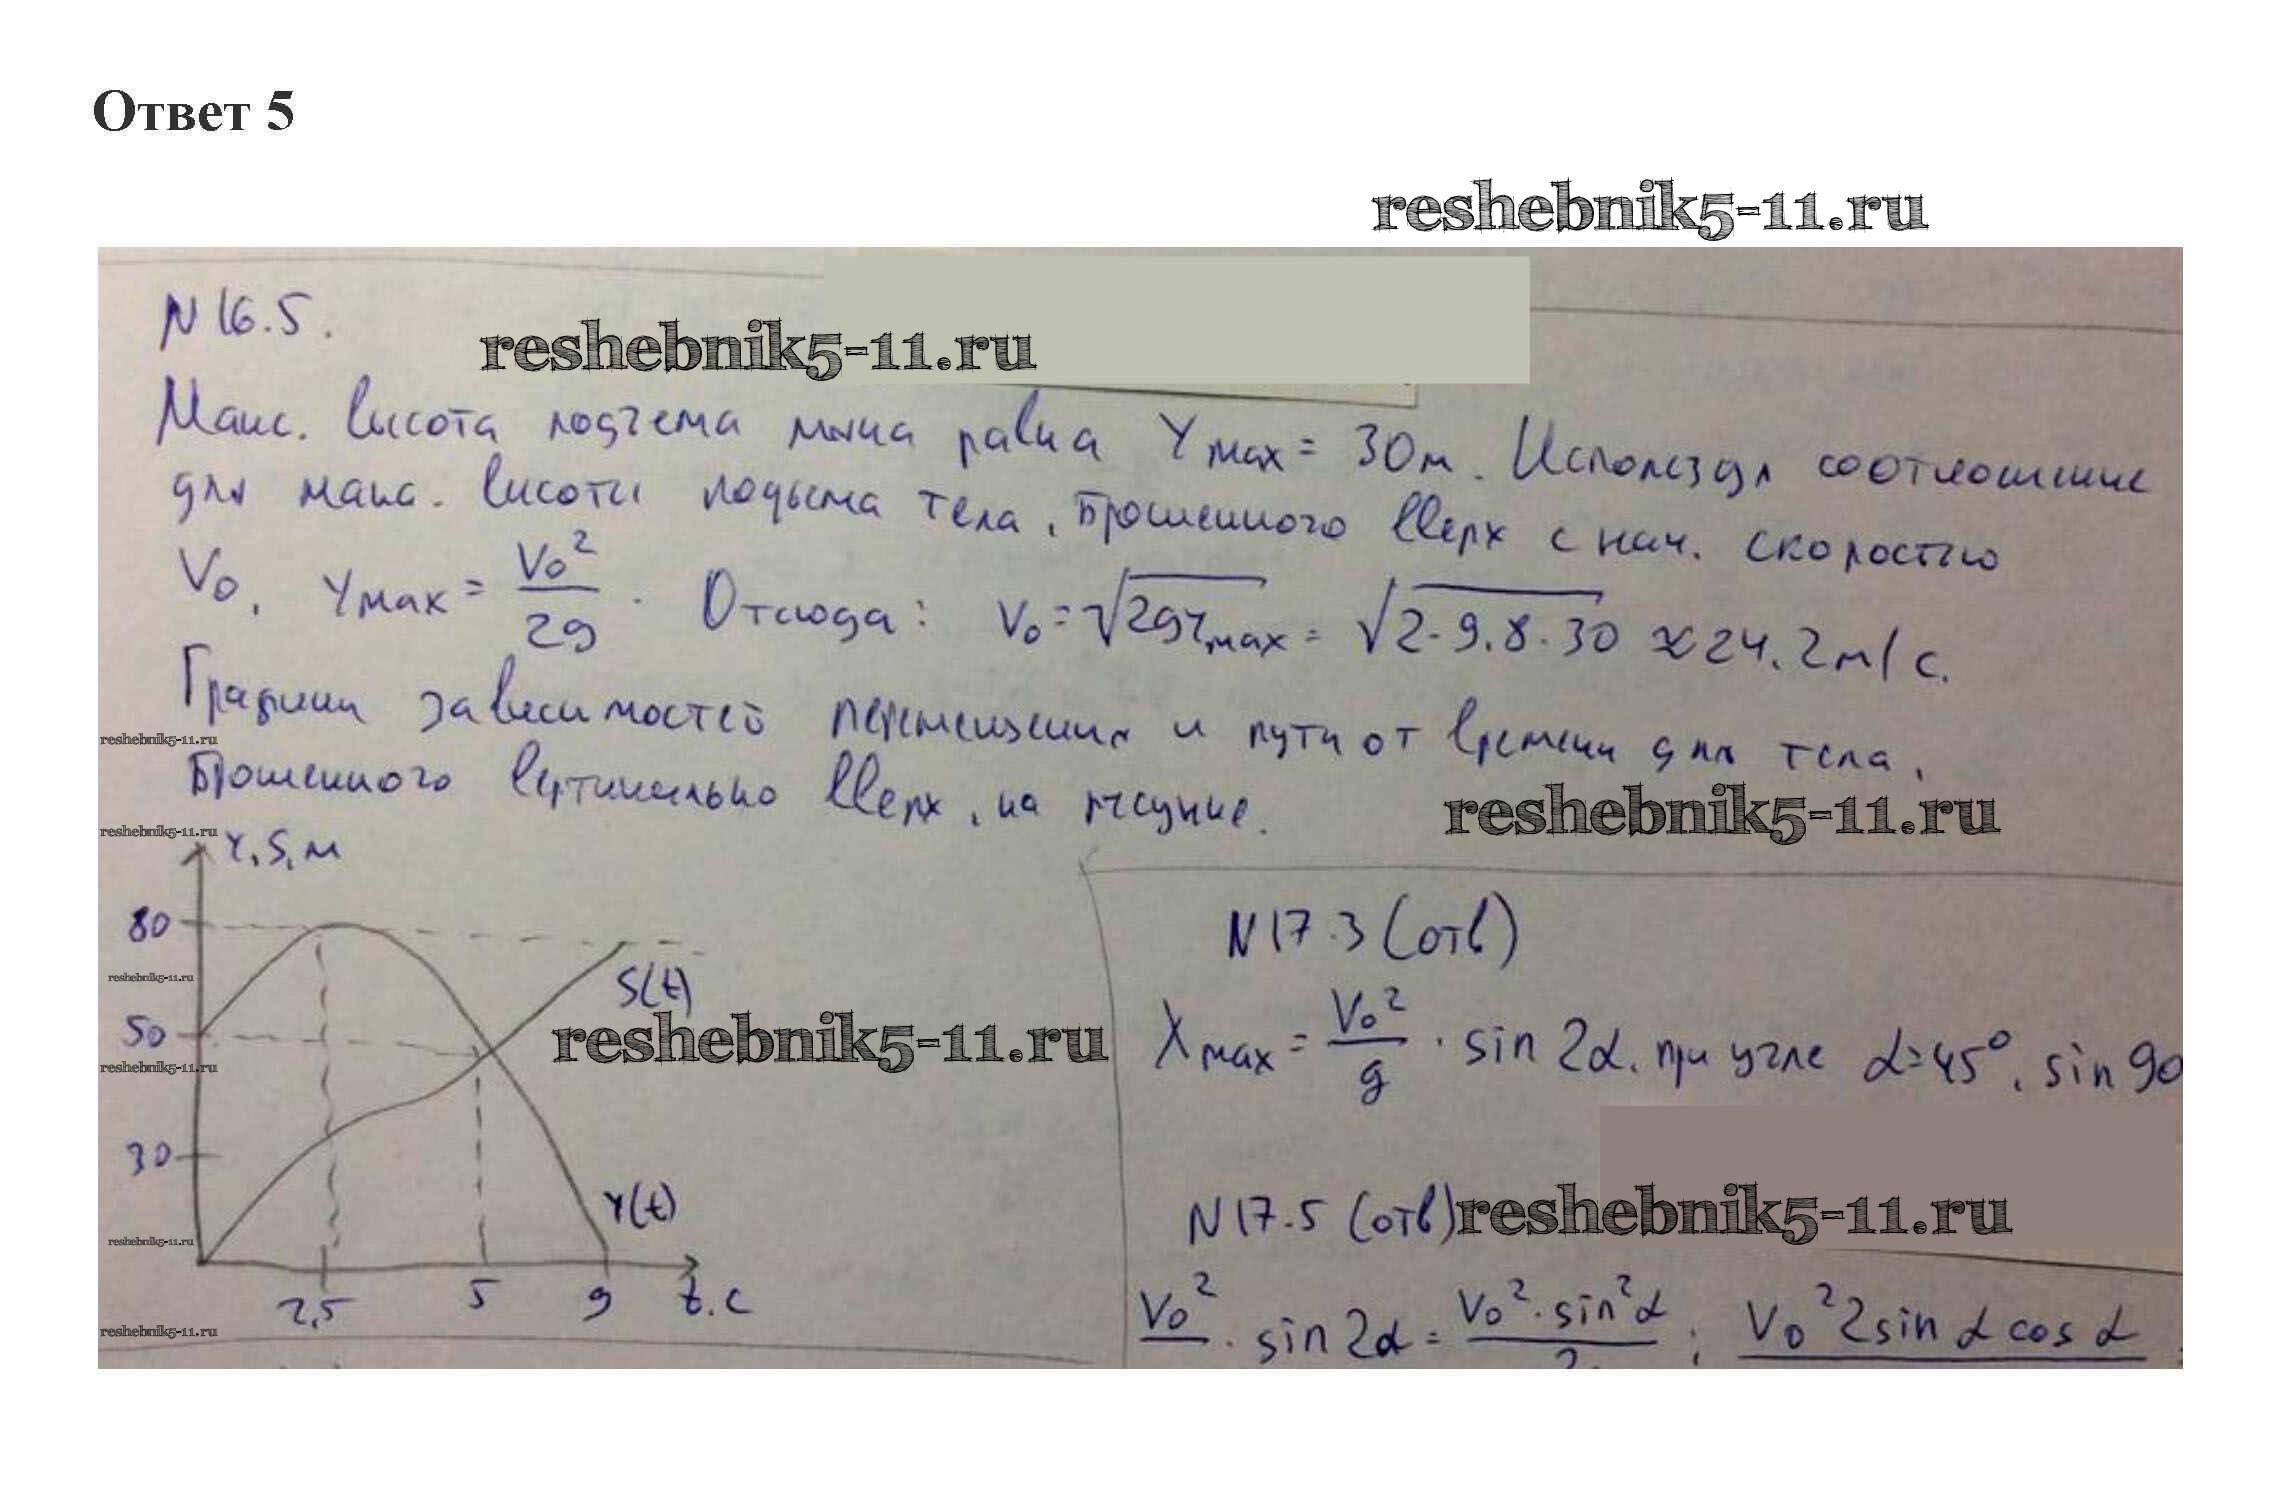 Ответ 5
reshebnik5-11.ru
N 16.5.
reshebnik5-11.ru
Макс. высота подъема мяча равна Ymax = 30м. Используя соотношение
для макс. высоты подъема тела, брошенного вверх с нач. скоростью
V₀, Ymax = V₀²/2g. Отсюда: V₀ = √2gYmax = √2·9.8·30 ≈ 24.2 м/с.
Графики зависимостей перемещения и пути от времени для тела,
reshebnik5-11.ru
брошенного вертикально вверх, на рисунке.
reshebnik5-11.ru
reshebnik5-11.ru
Y, S, м
80
reshebnik5-11.ru
S(t)
50
reshebnik5-11.ru
reshebnik5-11.ru
30
Y(t)
reshebnik5-11.ru
2,5 5 9 t, с
reshebnik5-11.ru
N 17.3 (отв)
Xmax = V₀²/g · sin 2α, при угле α=45°, sin 90
N 17.5 (отв)
reshebnik5-11.ru
V₀²/ · sin 2α = V₀² · sin²α/2 ; V₀² 2 sin α cos α